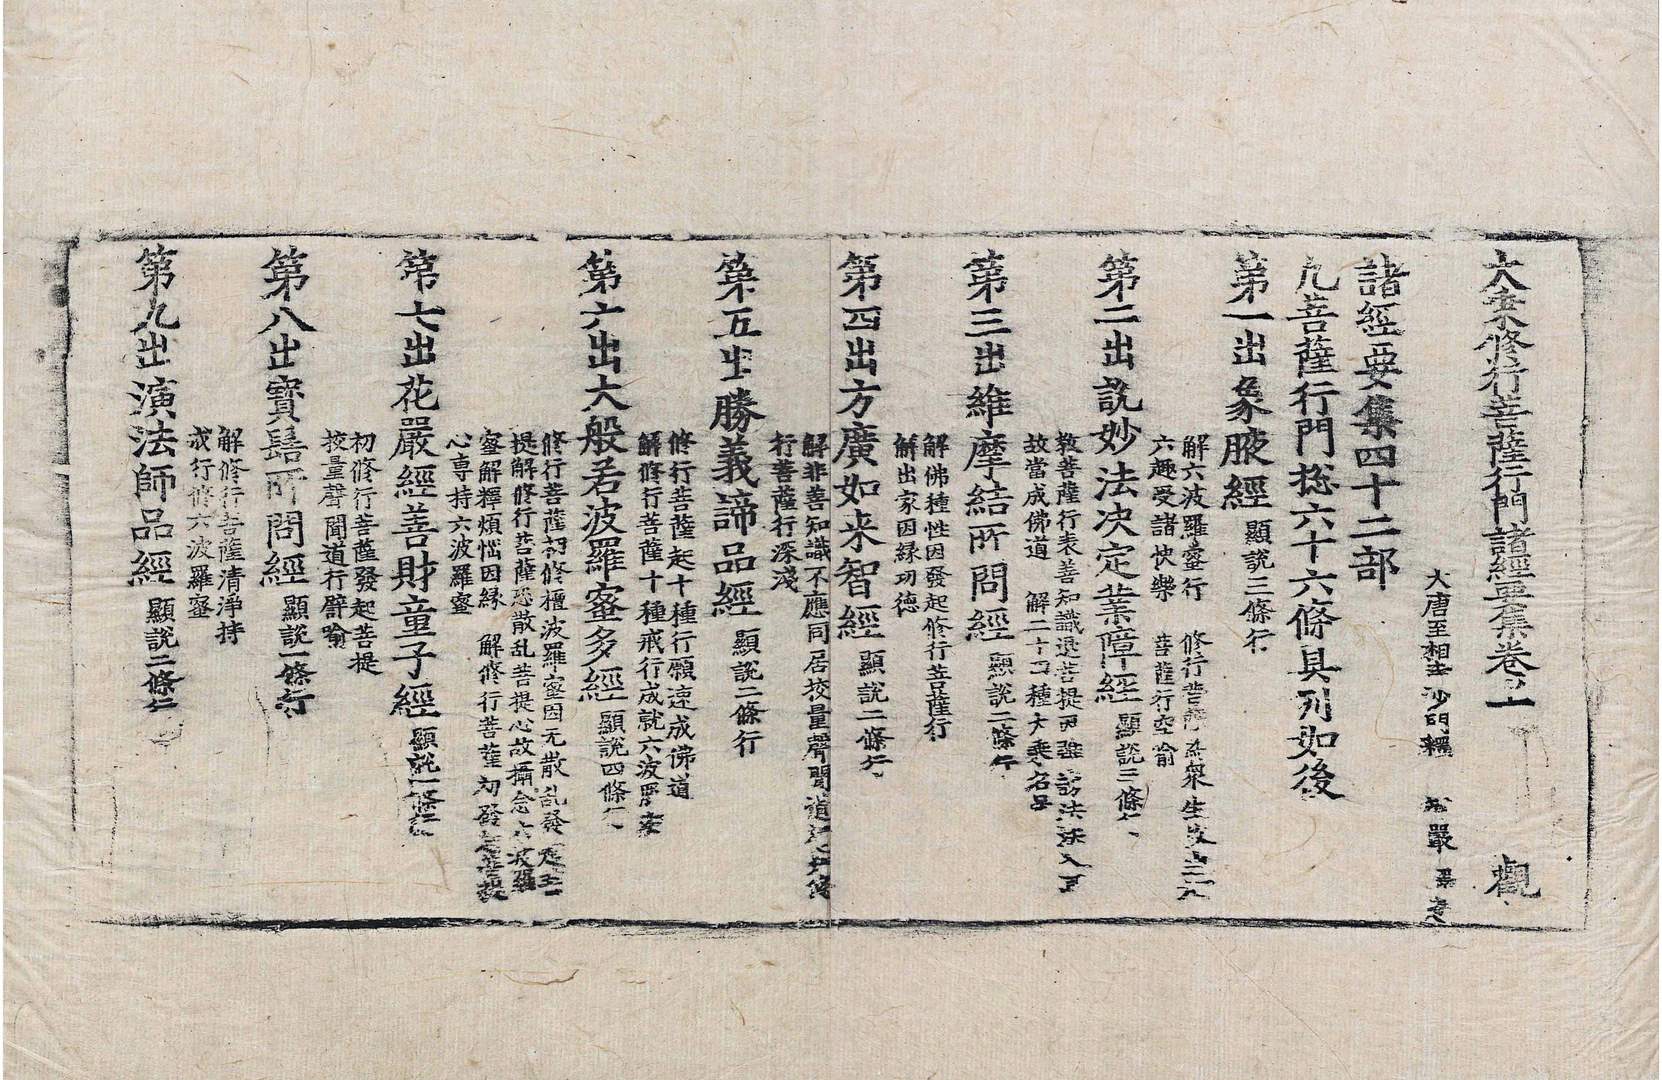 大乗修行菩薩行門諸經要集卷上 觀
大唐至相寺沙門釋 智嚴
諸經要集四十二部
凡菩薩行門捴六十六條具列如後
第一出象腋經 顯說三條行
解六波羅蜜行 修行菩薩 衆生
六趣受諸快樂 菩薩行空喻
第二出說妙法決定業障經 顯說三條
教善薩行表善知識退菩提 謗法
故當成佛道 解二十四種大乗名
第三出維摩結所問經 顯說二條行
解佛種性因發起修行菩薩行
解出家因縁功德
第四出方廣如来智經 顯說二條行
解非善知識不應同居挍量聲聞道
行善薩行深淺
第五出勝義諦品經 顯說二條行
修行菩薩起十種行願速成佛道
解修行善薩十種戒行成就六波羅蜜
第六出大般若波羅蜜多經 顯說四條
修行菩薩初修檀波羅蜜因无散乱發
提解修行菩薩恐散乱菩提心故攝念六波羅
蜜解釋煩惱因縁 解修行菩薩初發
心専持六波羅蜜
第七出花嚴經善財童子經 顯說一條
初修行善薩發起善提
挍量聲聞道行譬喻
第八出寳髻所問經 顯說一條行
解修行菩薩清淨持
戒行修六波羅蜜
第九出演法師品經 顯說二條行